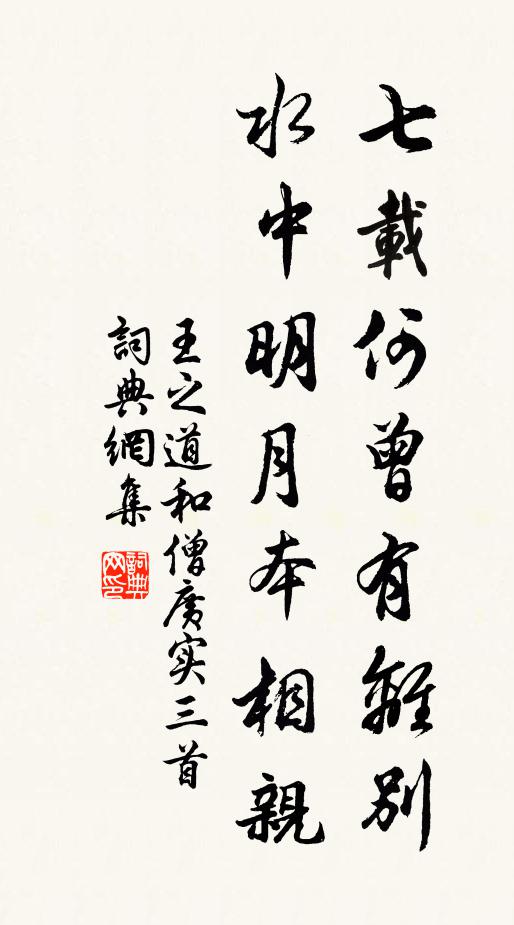 七載何曾有離別
水中明月本相親
王之道和僧廣实三首
詞典網集
詞典网印